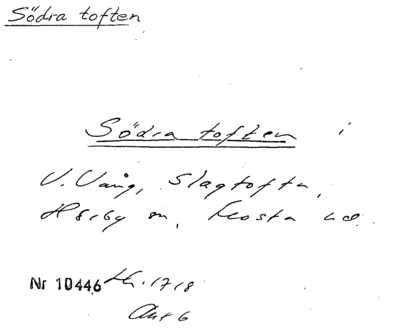 Södra toften
Södra toften i
V. Vång, Slagtofta,
Hörby sn, Frosta hd.
Nr 10446 Lh. 1718
Akt 6